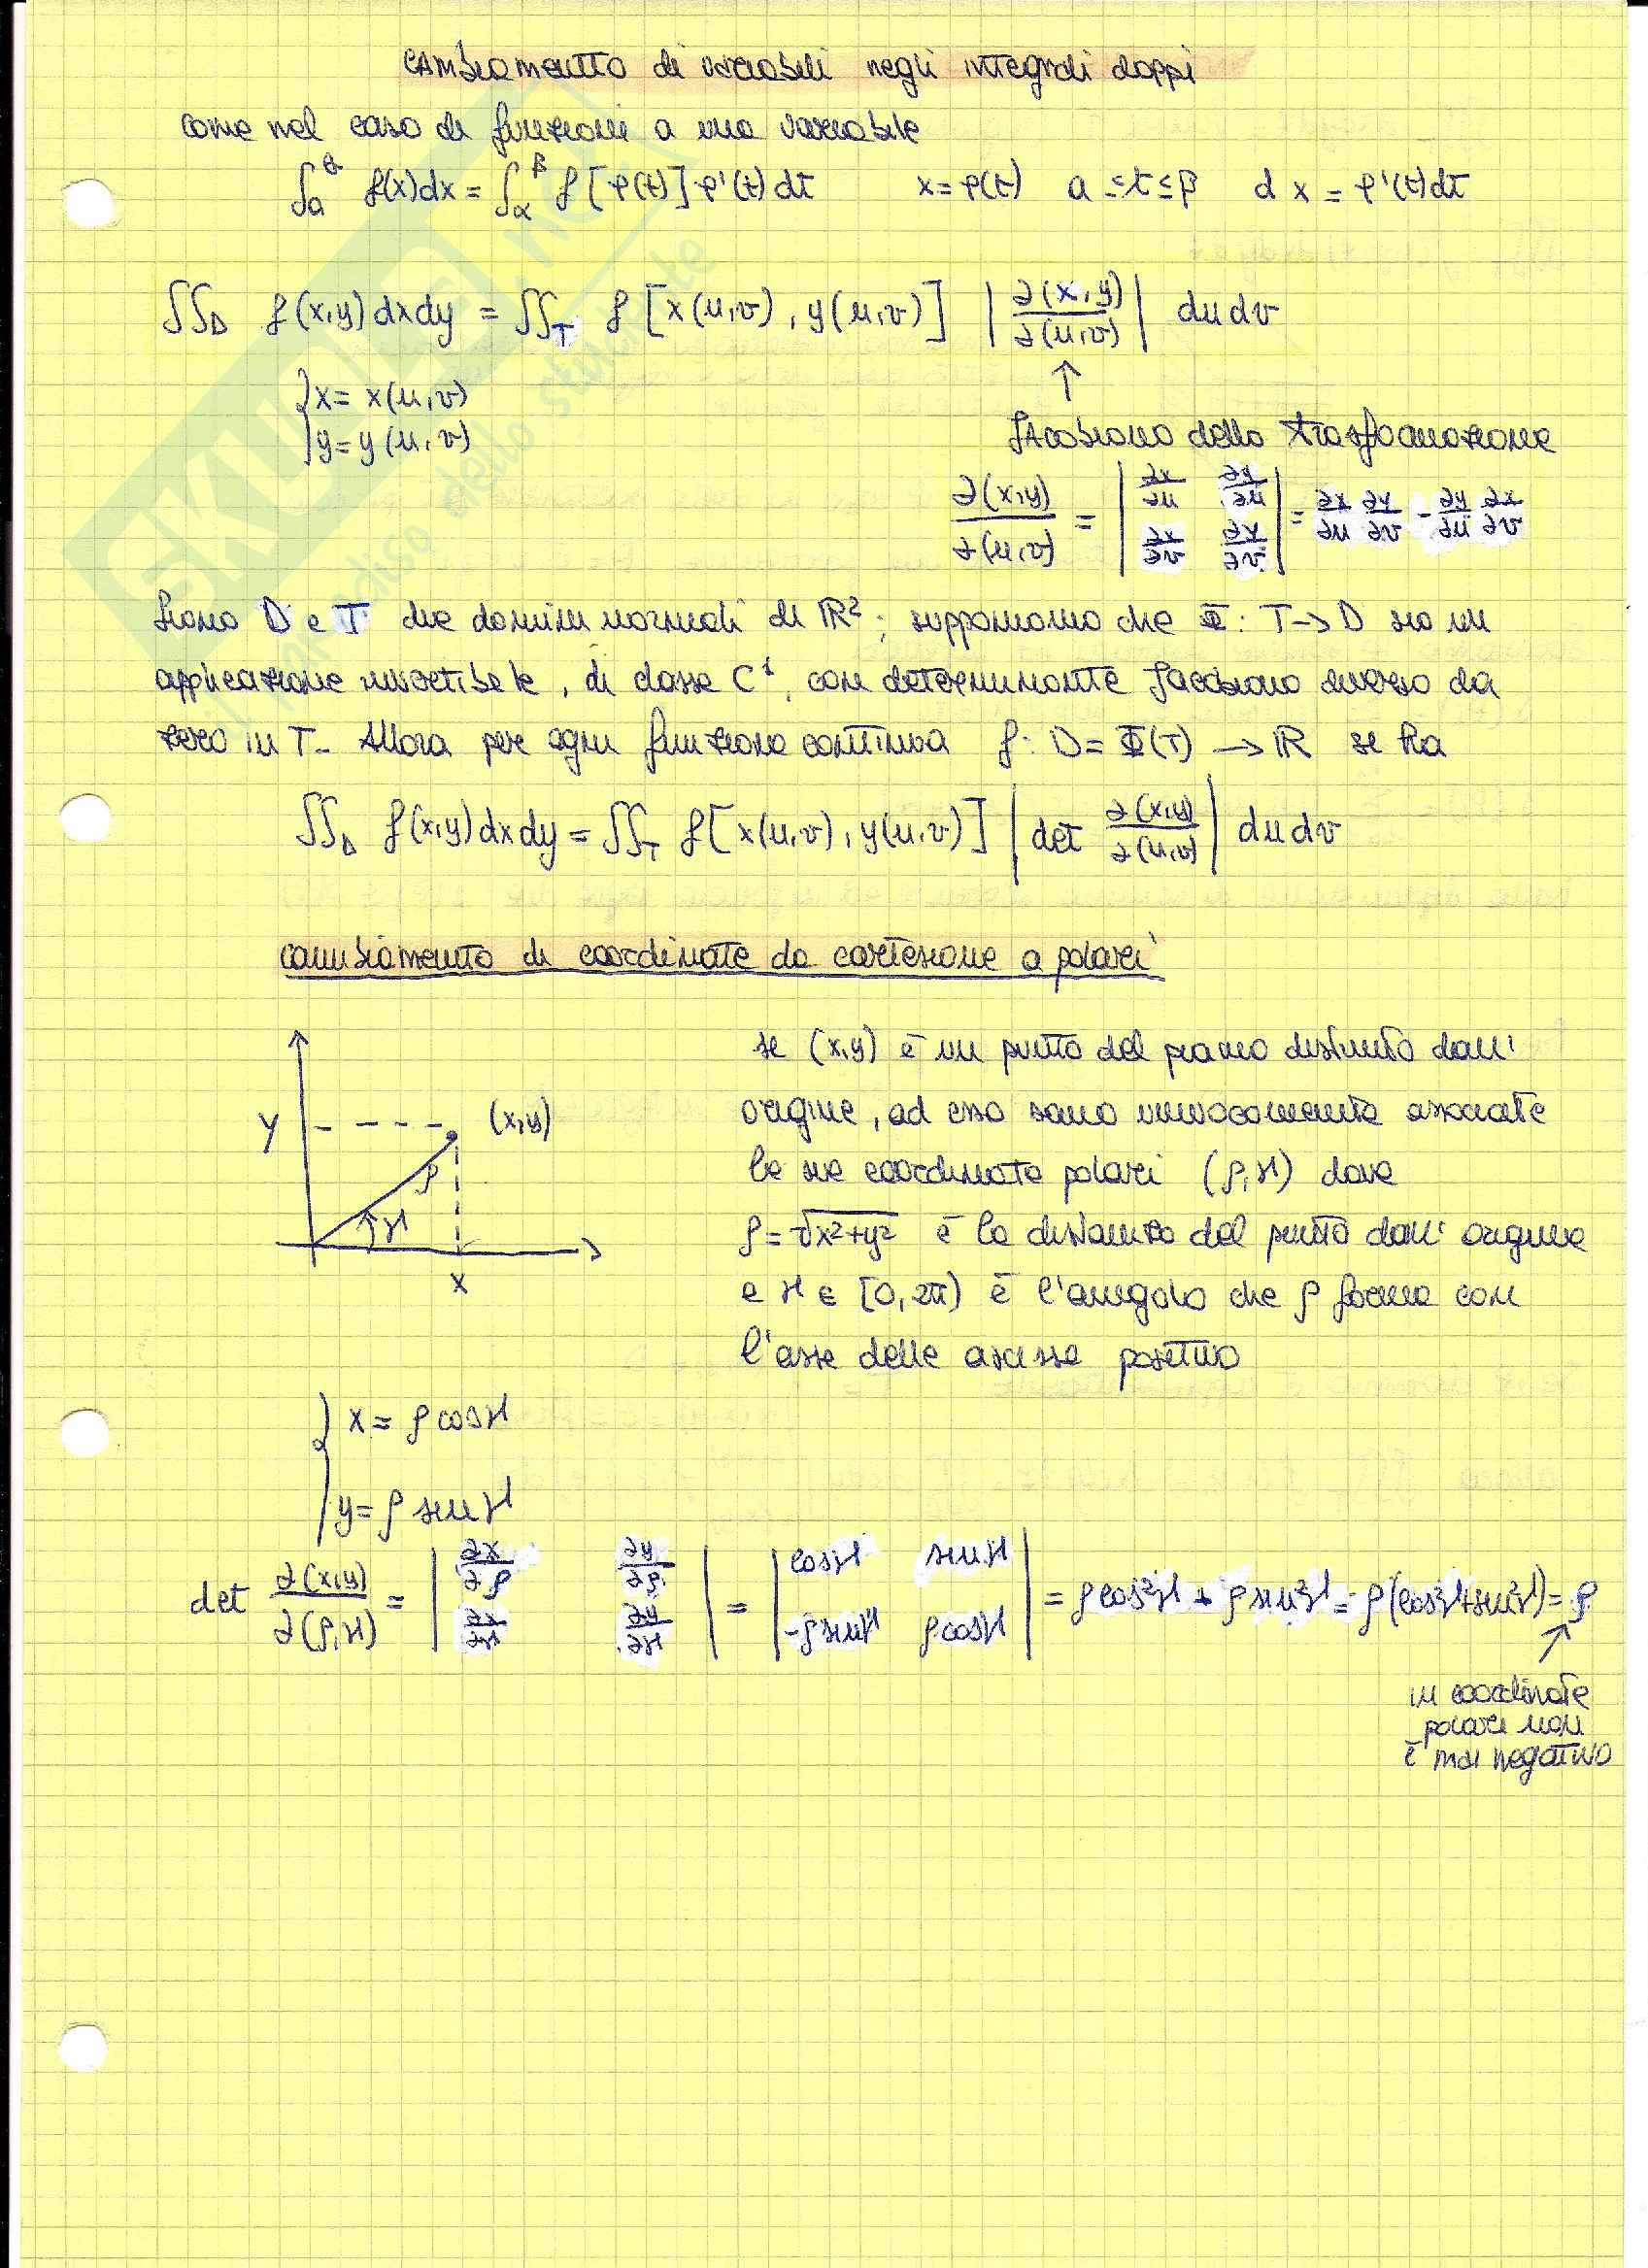 cambiamento di variabili negli integrali doppi
come nel caso di funzioni a una variabile
∫_a^b f(x)dx = ∫_α^β f[φ(t)]φ'(t)dt x=φ(t) α≤t≤β dx = φ'(t)dt
∬_D f(x,y)dxdy = ∬_T f[x(u,v), y(u,v)] |∂(x,y)/∂(u,v)| du dv
{x= x(u,v)
{y= y(u,v)
↑
Jacobiano della trasformazione
∂(x,y)/∂(u,v) = |∂x/∂u ∂y/∂u; ∂x/∂v ∂y/∂v| = ∂x/∂u ∂y/∂v - ∂y/∂u ∂x/∂v
Siano D e T due domini normali di ℝ²; supponiamo che Φ: T→D sia un
applicazione invertibile, di classe C¹, con determinante Jacobiano diverso da
zero in T- Allora per ogni funzione continua f: D= Φ(T) → ℝ si ha
∬_D f(x,y)dxdy = ∬_T f[x(u,v), y(u,v)] |det ∂(x,y)/∂(u,v)| du dv
cambiamento di coordinate da cartesiane a polari
y (x,y)
ρ
ϑ
x
se (x,y) è un punto del piano distinto dall'
origine, ad esso sono univocamente associate
le sue coordinate polari (ρ,ϑ) dove
ρ=√x²+y² è la distanza del punto dall' origine
e ϑ ∈ [0,2π) è l'angolo che ρ forma con
l'asse delle ascisse positivo
{x= ρ cosϑ
{y= ρ sinϑ
det ∂(x,y)/∂(ρ,ϑ) = |∂x/∂ρ ∂y/∂ρ; ∂x/∂ϑ ∂y/∂ϑ| = |cosϑ sinϑ; -ρ sinϑ ρ cosϑ| = ρ cos²ϑ + ρ sin²ϑ = ρ(cos²ϑ+sin²ϑ)= ρ
in coordinate
polari non
è mai negativo
SKUOLA.net
il paradiso dello studente